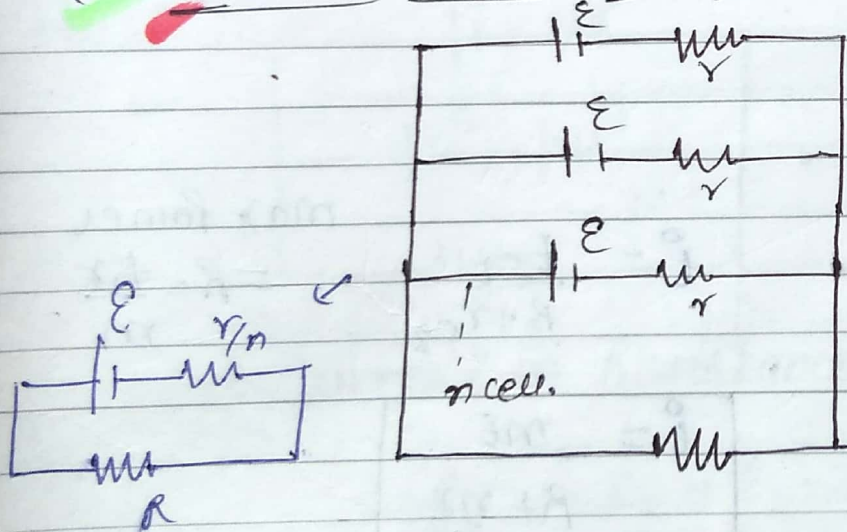 ε
r
ε
r
ε
r
n cell.
ε
r/n
R